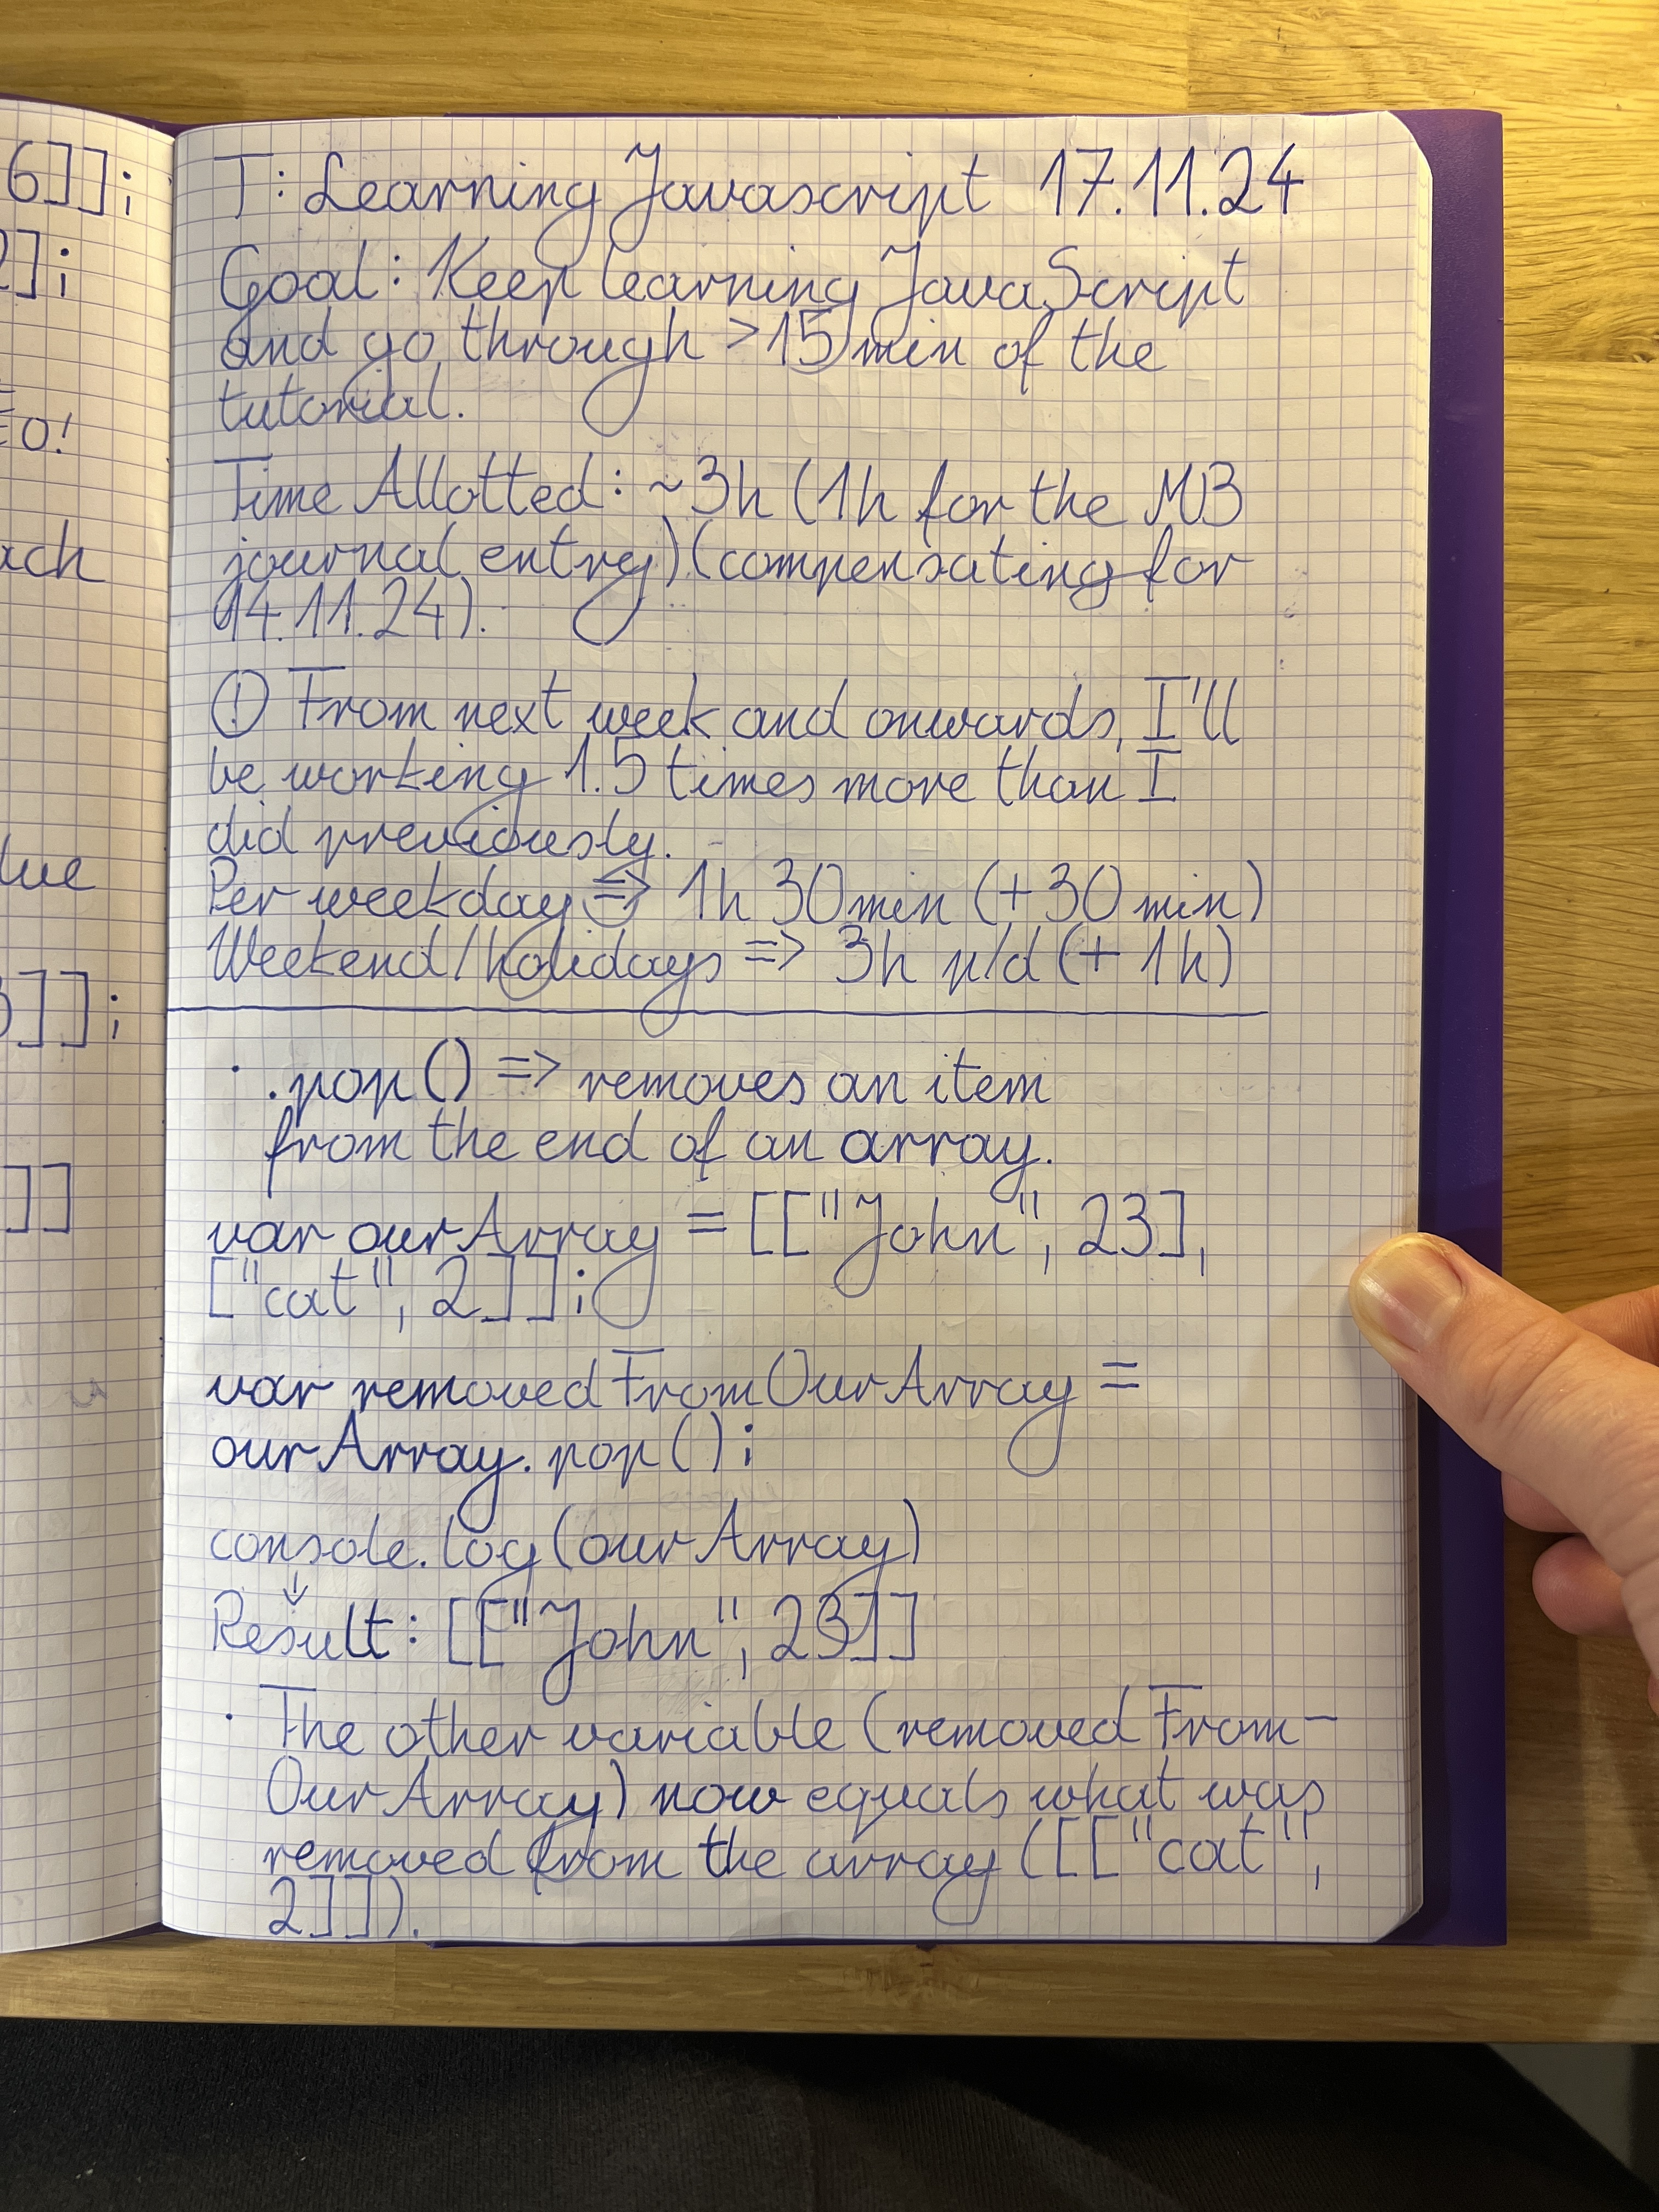 6]];
2];
O!
ach
lue
3]];
]]
T: Learning Javascript 17.11.24
Goal: Keep learning JavaScript
and go through >15 min of the
tutorial.
Time Allotted: ~3h (1h for the MB
journal entry) (compensating for
14.11.24).
! From next week and onwards, I'll
be working 1.5 times more than I
did previously.
Per weekday => 1h 30min (+30 min)
Weekend/holidays => 3h p/d (+ 1h)
· .pop() => removes an item
from the end of an array.
var ourArray = [["John", 23],
["cat", 2]];
var removedFromOurArray =
ourArray.pop();
console.log(ourArray)
↓
Result: [["John", 23]]
· The other variable (removedFrom-
OurArray) now equals what was
removed from the array ([["cat",
2]]).